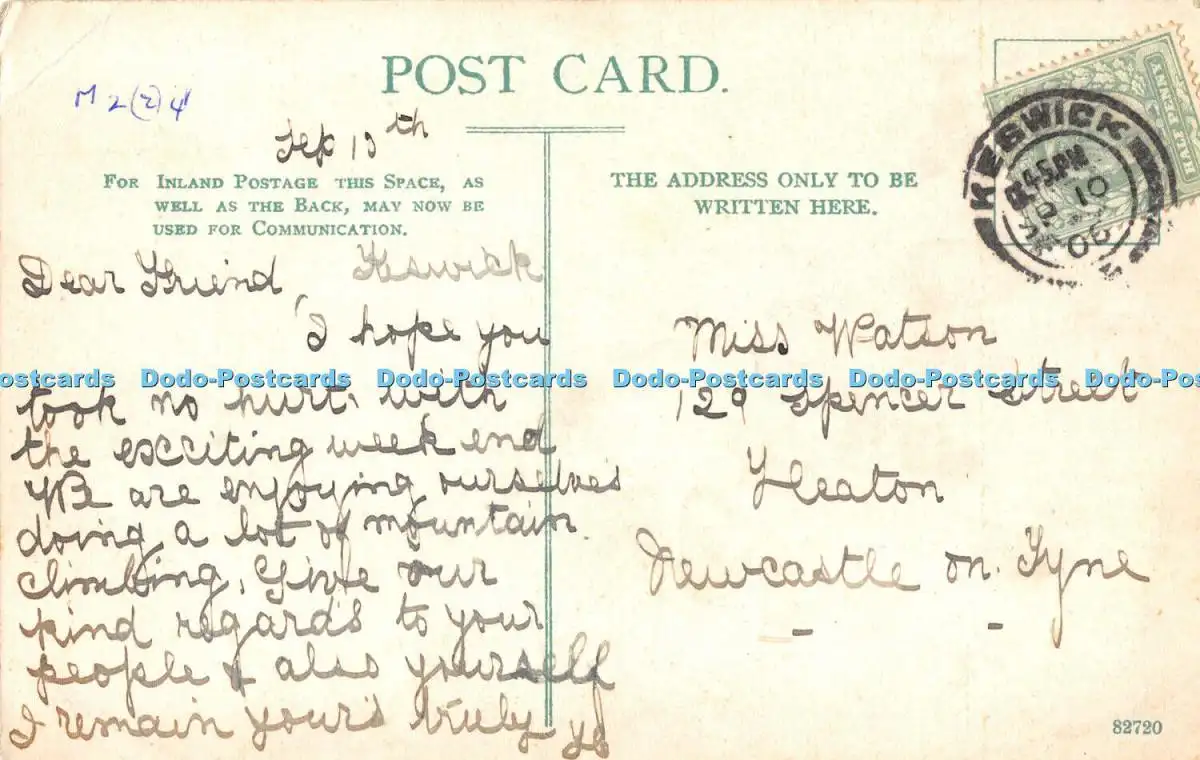 POST CARD.
M 2(2)4
Sep 10th
FOR INLAND POSTAGE THIS SPACE, AS
WELL AS THE BACK, MAY NOW BE
USED FOR COMMUNICATION.
Keswick
Dear Friend,
I hope you
took no hurt with
the exciting week end
We are enjoying ourselves
doing a lot of mountain
climbing. Give our
kind regards to your
people & also yourself
I remain yours truly
THE ADDRESS ONLY TO BE
WRITTEN HERE.
KESWICK
8.45 PM
SP 10
06
Miss Watson
129 Spencer Street
Heaton
Newcastle on Tyne
82720
Dodo-Postcards Dodo-Postcards Dodo-Postcards Dodo-Postcards Dodo-Postcards Dodo-Postcards